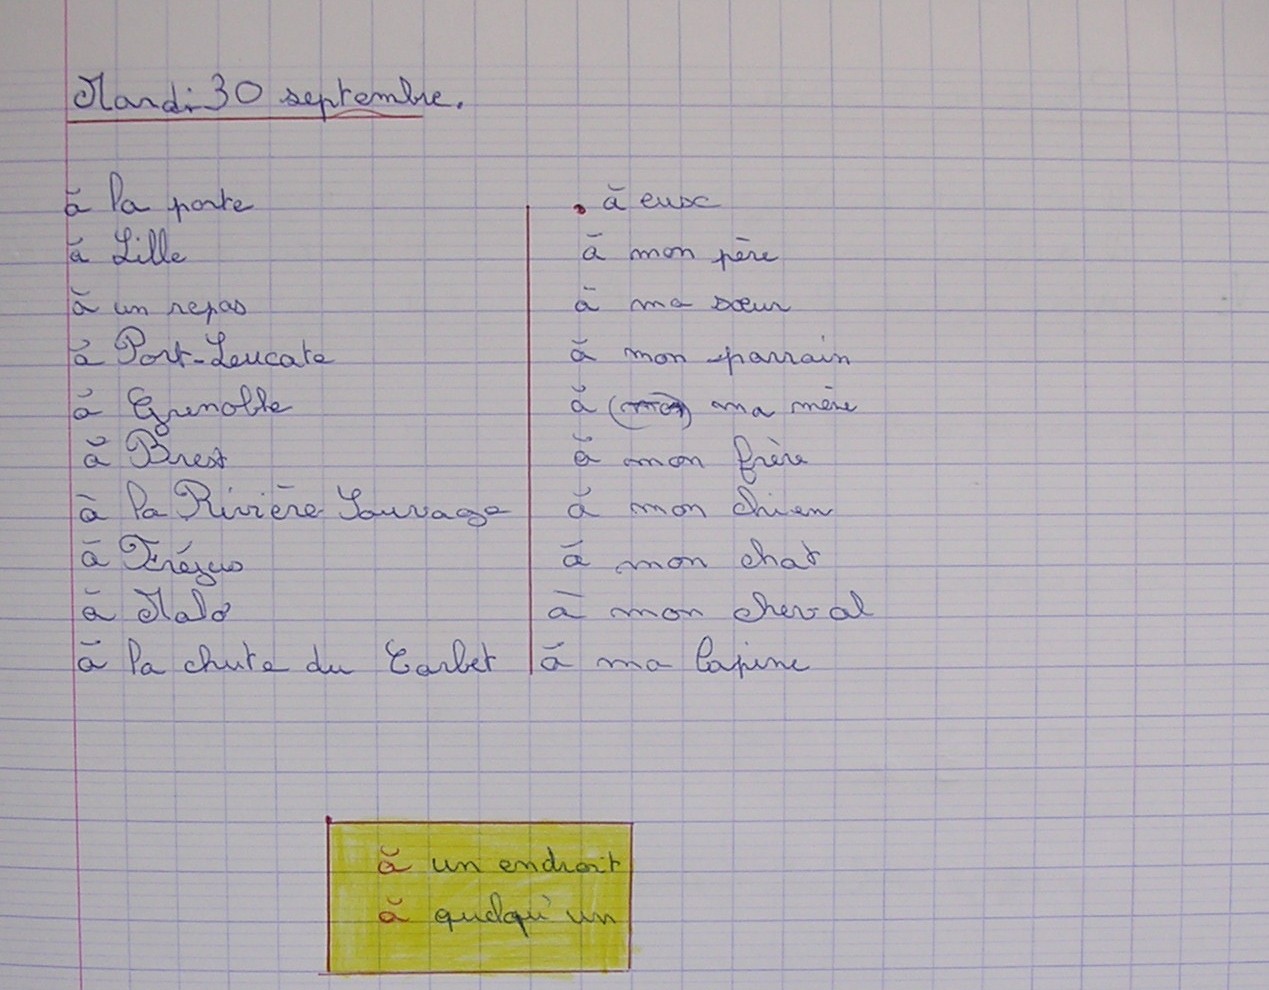 Mardi 30 septembre.
à la porte
à Lille
à un repas
à Port-Leucate
à Grenoble
à Brest
à la Rivière Sauvage
à Fréjus
à Malo
à la chute du Carbet
à eux
à mon père
à ma sœur
à mon parrain
à (mon) ma mère
à mon frère
à mon chien
à mon chat
à mon cheval
à ma lapine
à un endroit
à quelqu'un